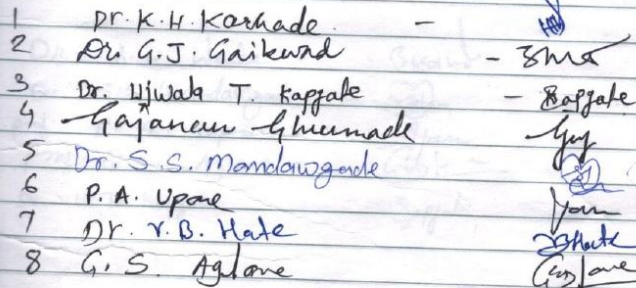 1 Dr. K. H. Karhade -
2 Dr. G. J. Gaikwad -
3 Dr. Ujwala T. Kapgate - Kapgate
4 Gajanan Ghumade
5 Dr. S. S. Mandawgade
6 P. A. Upare
7 Dr. V. B. Hate
8 G. S. Aglave